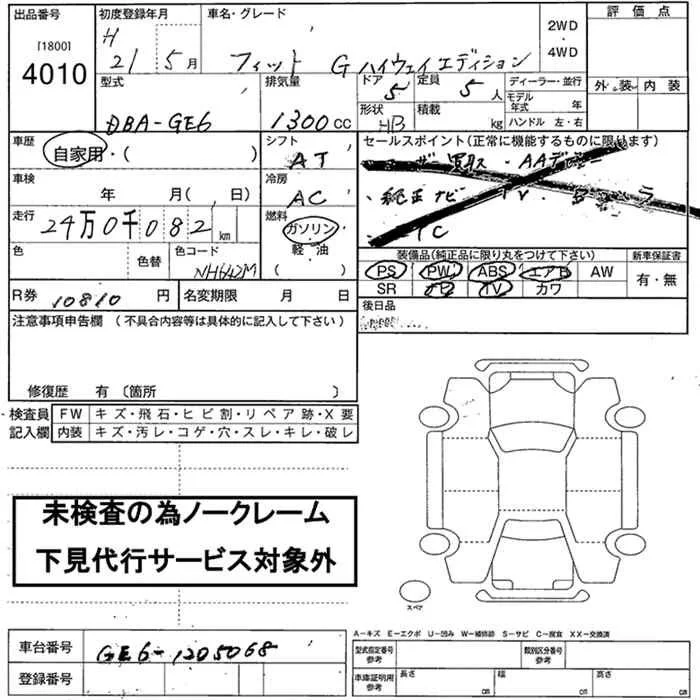 出品番号 初度登録年月 車名・グレード 2WD・4WD 評価点
[1800]
4010
H 21 5月 フィット G ハイウェイエディション
外装 内装
型式 排気量 ドア 5 定員 5人 ディーラー・並行
DBA-GE6 1300cc 形状 HB 積載 kg モデル年式 年
ハンドル 左・右
車歴 自家用・( ) シフト AT
セールスポイント(正常に機能するものに限ります)
車検 年 月( 、 日) 冷房 AC
・純正ナビ TV
走行 24万0千082km 燃料 ガソリン・軽・油 ( )
色 色替 色コード NH642M
装備品(純正品に限り丸をつけて下さい) 新車保証書
PS PW ABS エアB AW 有・無
SR ナビ TV カワ
R券 10810円 名変期限 月 日
後日品
注意事項申告欄 (不具合内容等は具体的に記入して下さい)
修復歴 有 〔箇所 〕
検査員記入欄 FW キズ・飛石・ヒビ割・リペア跡・X要
内装 キズ・汚レ・コゲ・穴・スレ・キレ・破レ
未検査の為ノークレーム
下見代行サービス対象外
スペア
A-キズ E-エクボ U-凹み W-補修跡 S-サビ C-腐食 XX-交換済
車台番号 GE6-1205068
型式指定番号 参考 類別区分番号 参考
登録番号
車庫証明用 参考 長さ cm 幅 cm 高さ cm